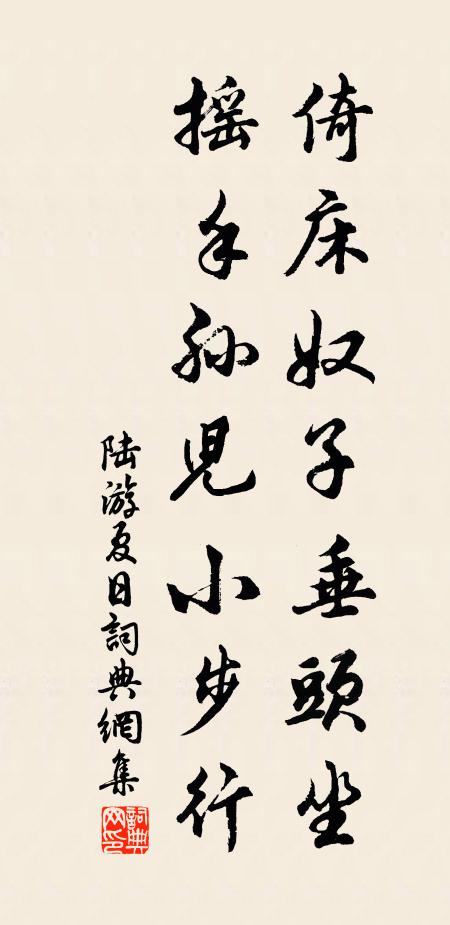 倚床奴子垂頭坐
摇手孙兒小步行
陆游夏日詞典網集
詞典网印